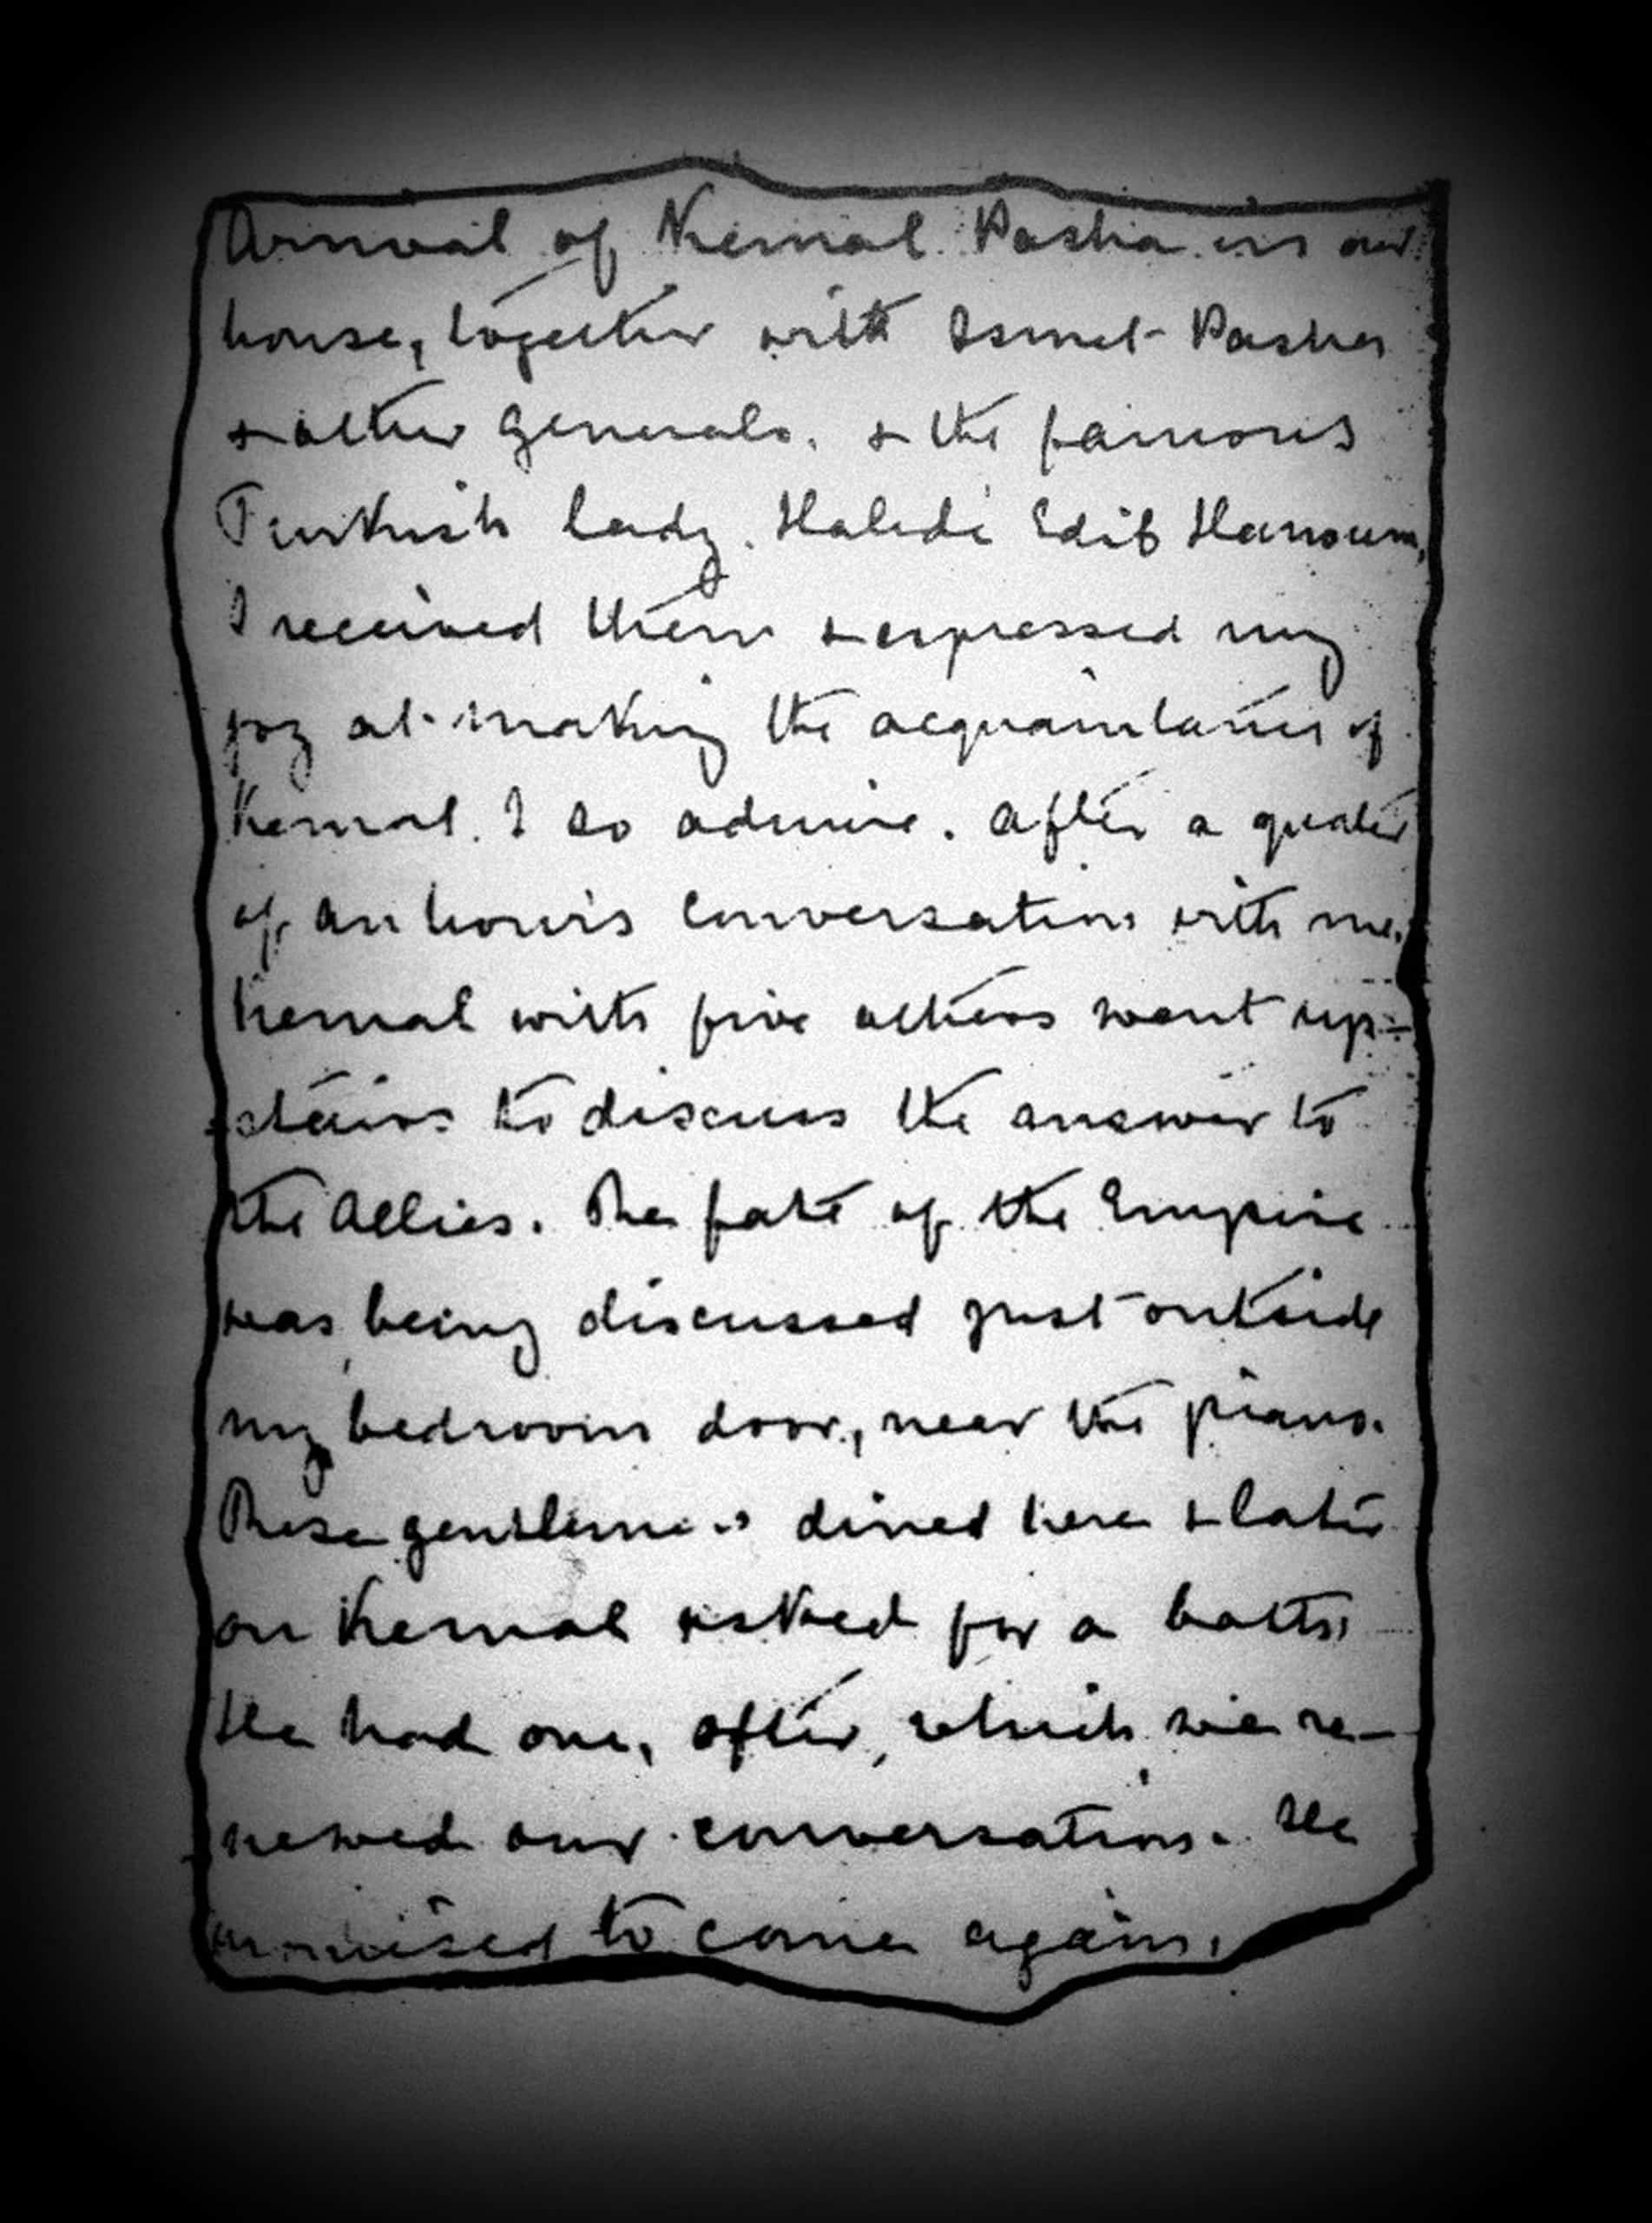 Arrival of Kemal Pasha in our
house, together with Ismet Pasha
& other Generals, & the famous
Turkish lady, Halidé Edib Hanoum,
I received them & expressed my
joy at making the acquaintance of
Kemal I so admire. After a quater
of an hour's conversation with me,
Kemal with five others went up-
stairs to discuss the answer to
the Allies. The fate of the Empire
was being discussed just outside
my bedroom door, near the piano.
These gentlemen dined here & later
on Kemal asked for a bath.
He had one, after which we re-
newed our conversation. He
promised to come again.